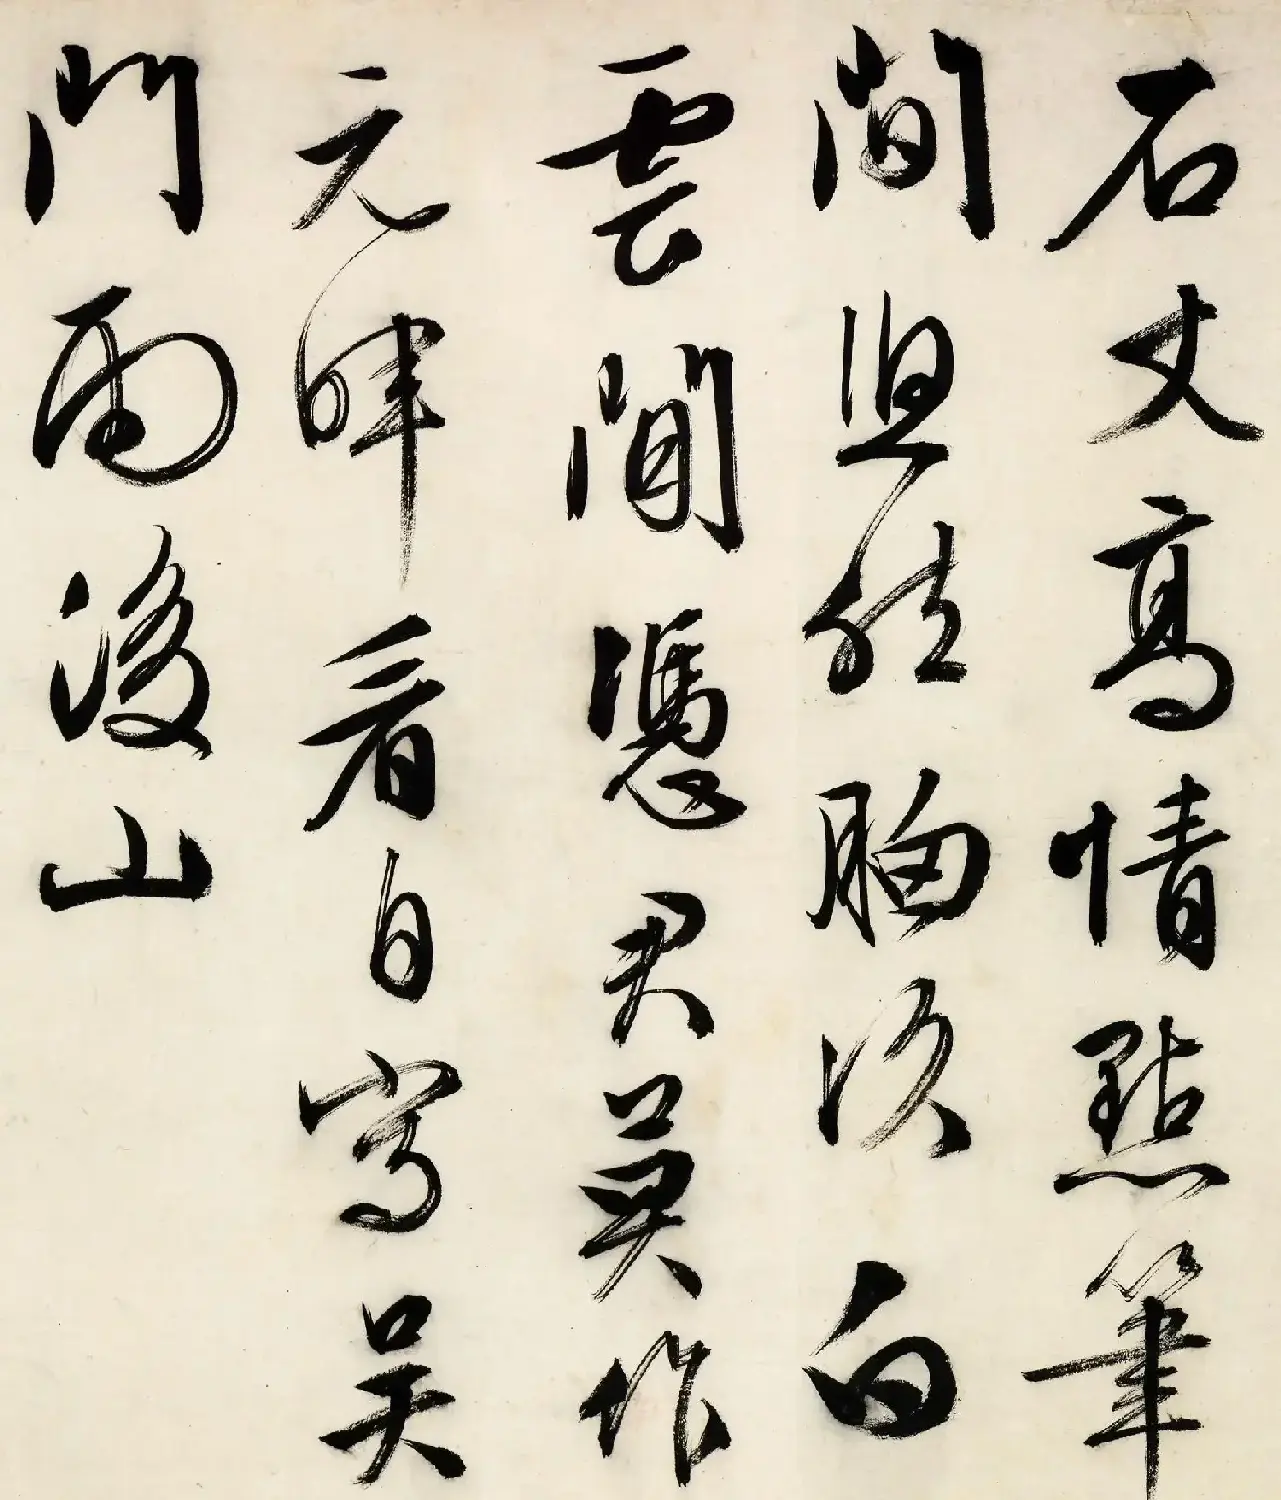 石丈高情點筆
間坦然胸次白
雲閒憑君莫作
元暉看自寫吳
門雨後山